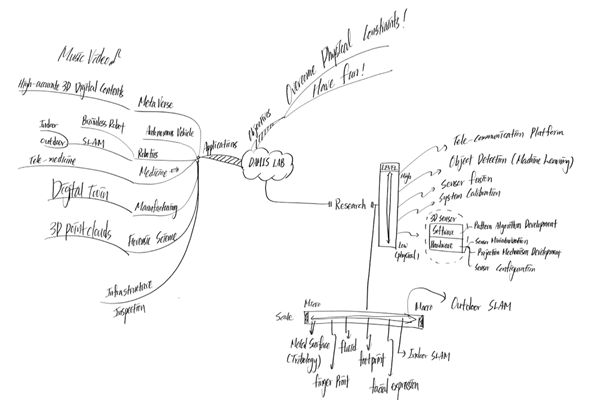 Music Video
High-accurate 3D Digital Contents
Meta Verse
Indoor
Outdoor
Business Robot
SLAM
Autonomous Vehicle
Robotics
Tele-medicine
Medicine
Digital Twin
Manufacturing
3D point clouds
Forensic Science
Infrastructure
Inspection
Applications
LAB
Objectives
Overcome Physical Constraints!
Have fun!
Research
LEVEL
High
Low
(physical)
Tele-communication Platform
Object Detection (Machine Learning)
Sensor fusion
System Calibration
3D sensor
Software
Hardware
Pattern Algorithm Development
Sensor Miniaturization
Projection Mechanism Development
Sensor Configuration
Scale
Micro
Macro
Outdoor SLAM
Metal Surface
(Tribology)
finger Print
fluid
footprint
facial expression
Indoor SLAM